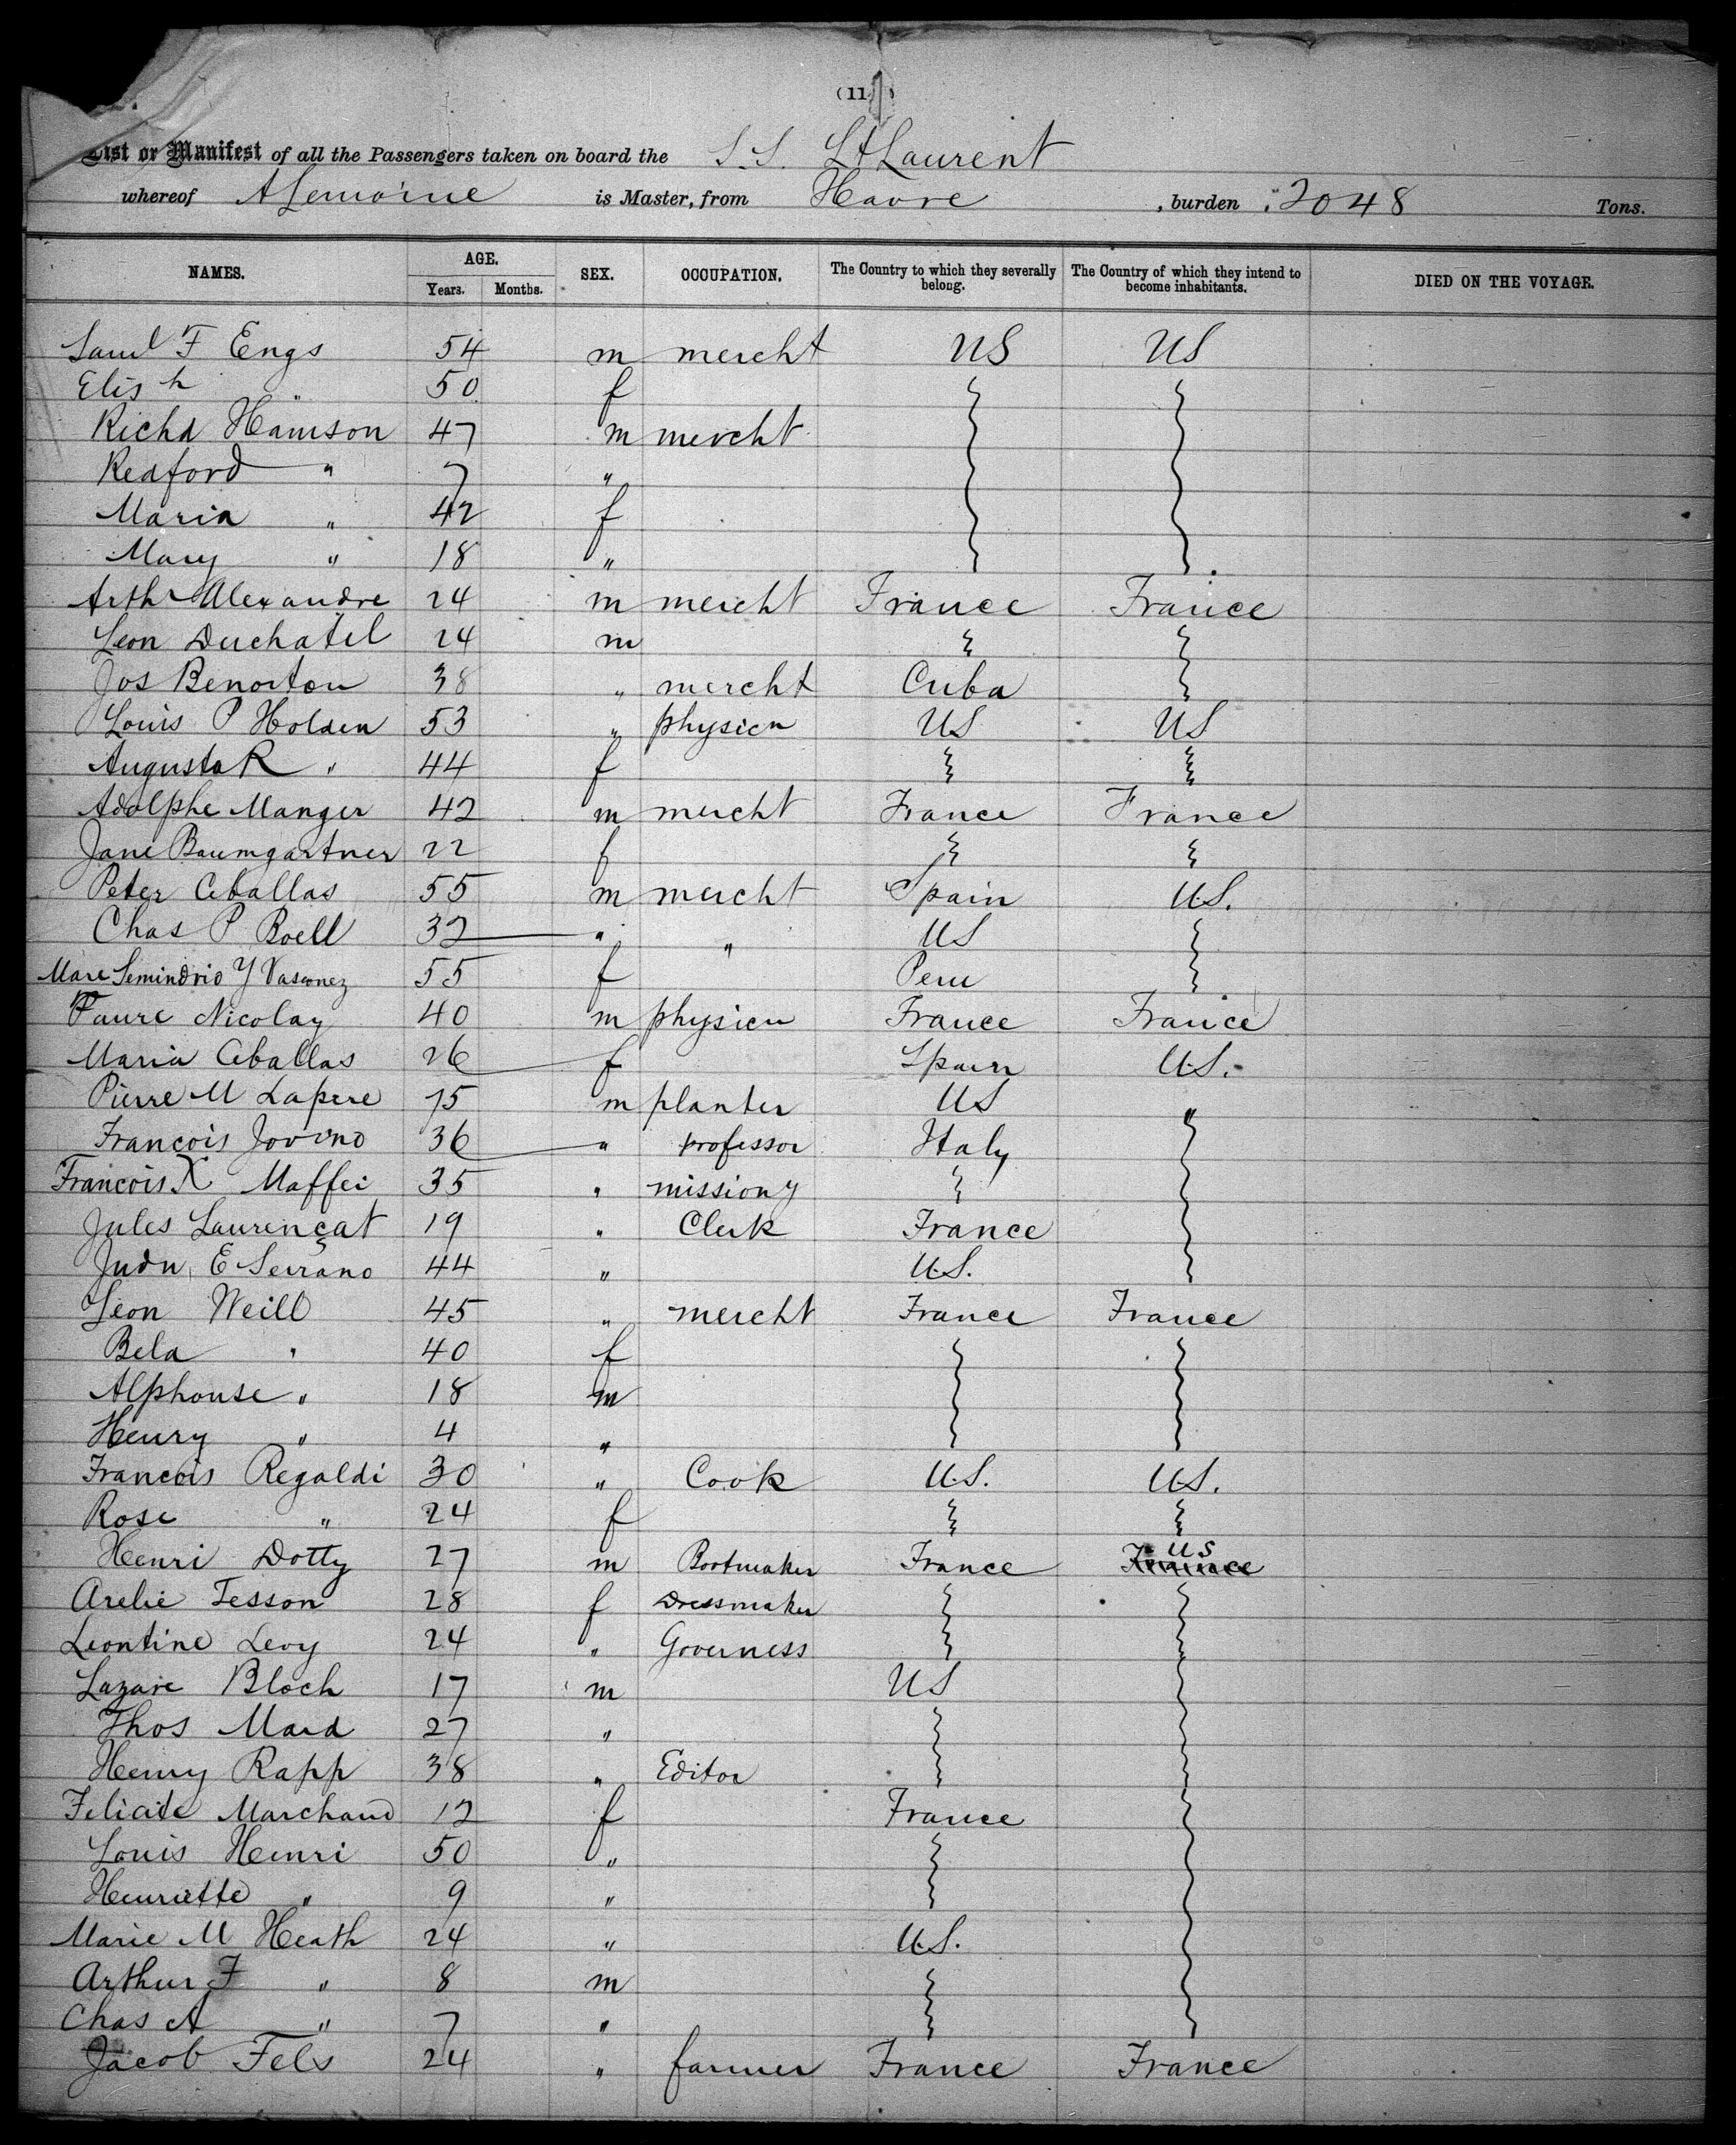 (11)
List or Manifest of all the Passengers taken on board the S.S. St Laurent
whereof A Lemoine is Master, from Havre, burden 2048 Tons.
NAMES. AGE. Years. Months. SEX. OCCUPATION. The Country to which they severally belong. The Country of which they intend to become inhabitants. DIED ON THE VOYAGE.
Saml F Engs 54 m mercht US US
Elis h " 50 f
Richd Hamson 47 m mercht
Redford " 7 "
Maria " 42 f
Mary " 18 "
Arthr Alexandre 24 m mercht France France
Leon Duchatel 24 m
Jos Benorton 38 " mercht Cuba
Louis P Holden 53 " physicn US US
Augusta R " 44 f
Adolphe Manger 42 m mercht France France
Jane Baumgartner 22 f
Peter Ceballas 55 m mercht Spain U.S.
Chas P Boell 32 " " US
Mare Semindrio Y Vasconez 55 f Peru
Faure Nicolay 40 m physicn France France
Maria Ceballas 26 f Spain U.S.
Pierre M Lapere 75 m planter US "
Francois Jovino 36 " professor Italy
Francois X Maffei 35 " missiony
Jules Laurençat 19 " Clerk France
E Serrano 44 " U.S.
Leon Weill 45 " mercht France France
Bela " 40 f
Alphonse " 18 m
Henry " 4 "
Francois Regaldi 30 " Cook U.S. U.S.
Rose " 24 f
Henri Dotty 27 m Bootmaker France France US
Arelie Tesson 28 f Dressmaker
Leontine Levy 24 " Governess
Lazare Bloch 17 m US
Thos Mard 27 "
Henry Rapp 38 " Editor
Felicite Marchand 12 f France
Louis Henri 50 "
Henriette " 9 "
Marie M Heath 24 " U.S.
Arthur F " 8 m
Chas A " 7 "
Jacob Fels 24 " farmer France France